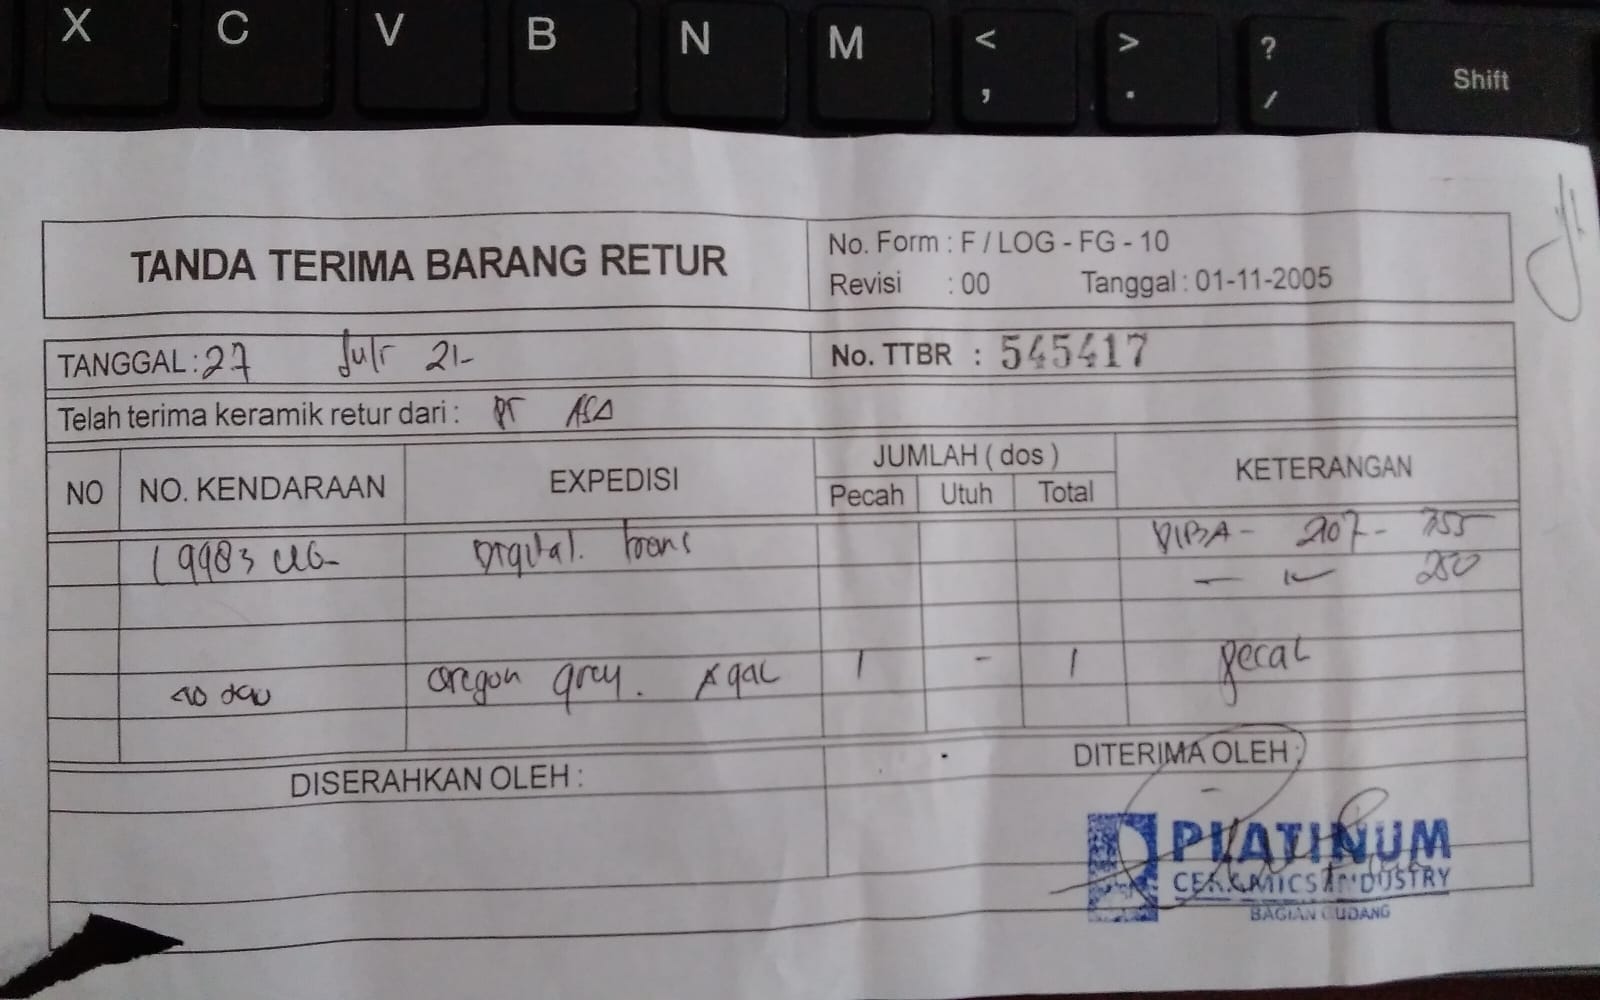 X C V B N M < , > . ? / Shift
TANDA TERIMA BARANG RETUR
No. Form : F / LOG - FG - 10
Revisi : 00 Tanggal : 01-11-2005
TANGGAL : 27 Juli 21-
No. TTBR : 545417
Telah terima keramik retur dari : PT ASA
NO NO. KENDARAAN EXPEDISI JUMLAH ( dos ) KETERANGAN
Pecah Utuh Total
L 9983 UG- Digital. trans - 207 - 355
250
oregon grey. 1 - 1 pecah
DISERAHKAN OLEH :
DITERIMA OLEH :
PLATINUM
CERAMICS INDUSTRY
BAGIAN GUDANG